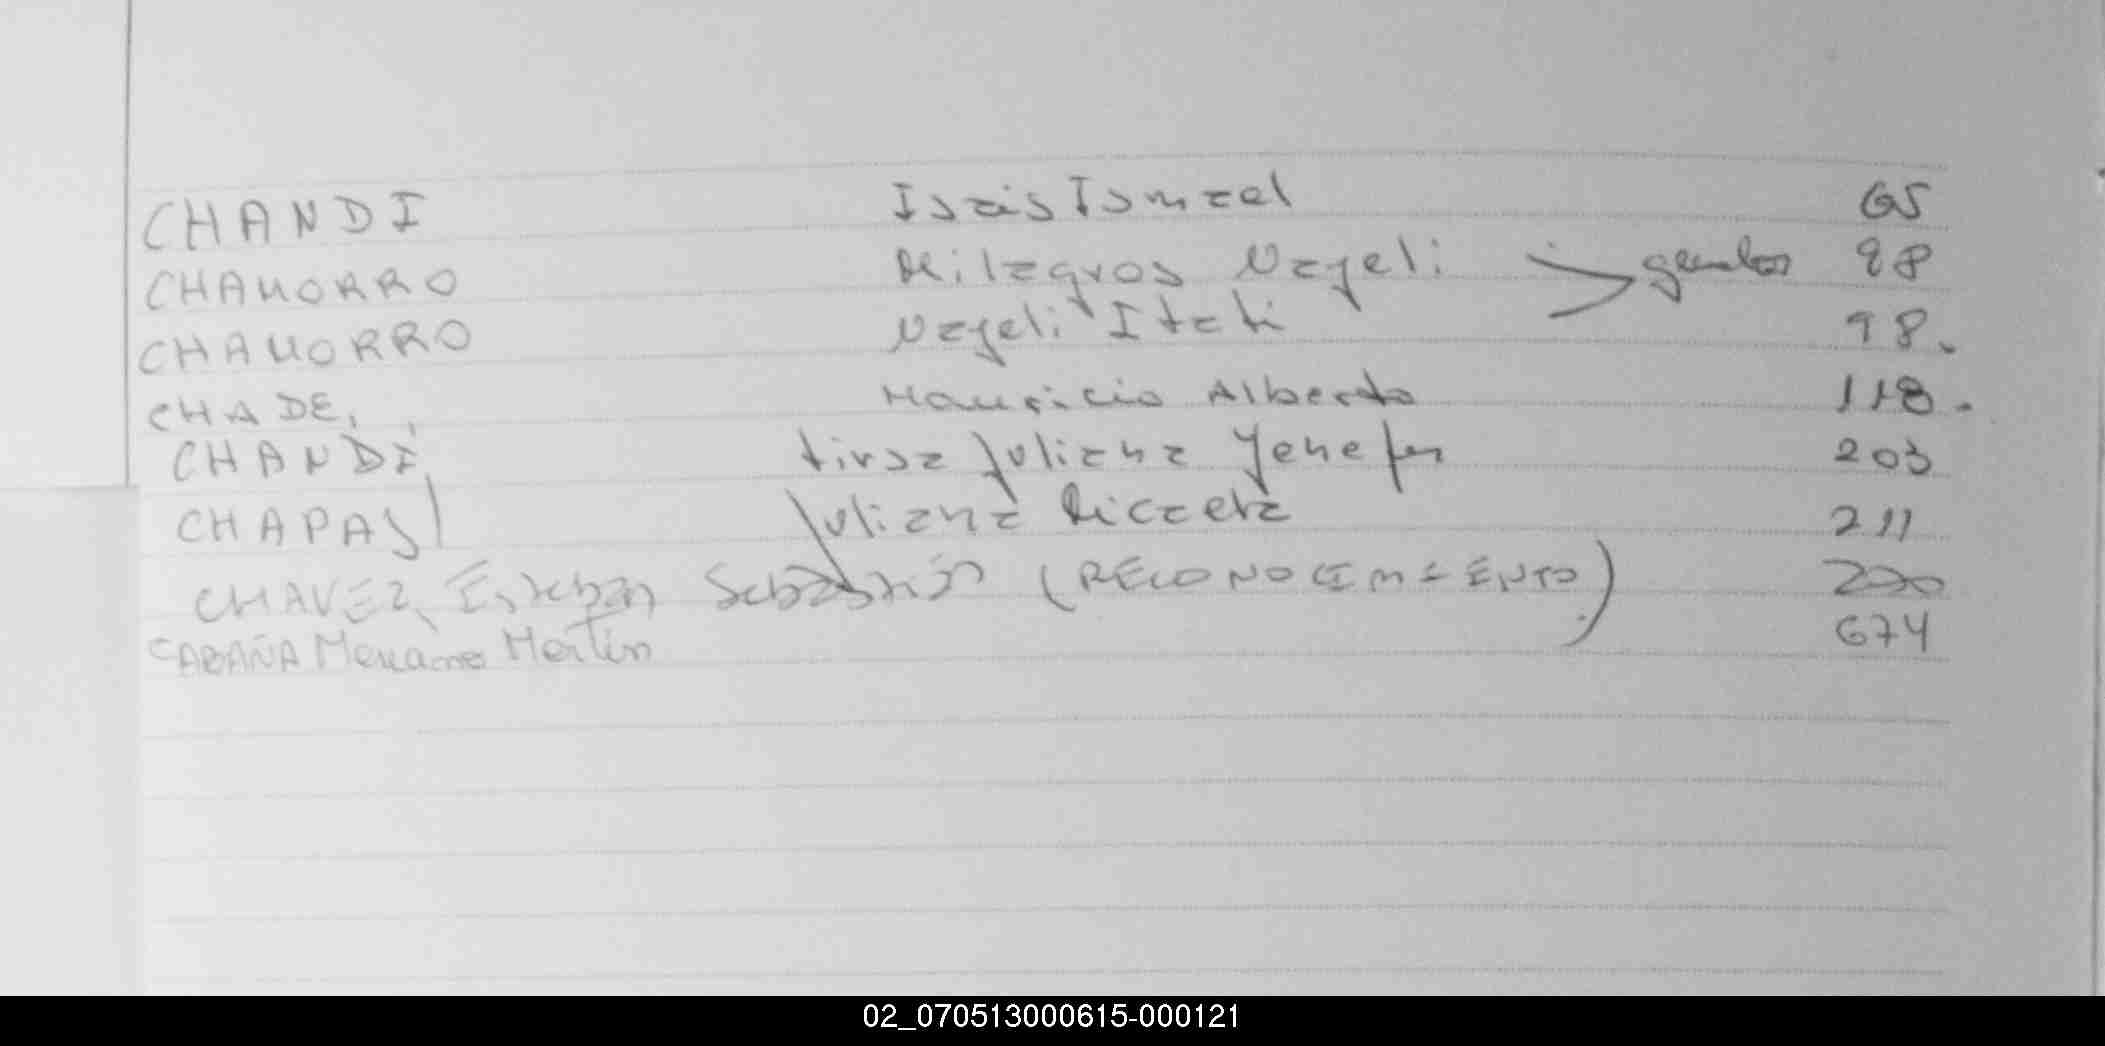 CHANDI Isais Ismael 65
CHAMORRO Milagros Nazeli gemelas 98
CHAMORRO Nazeli Itati 98.
CHADE, Mauricio Alberto 118.
CHANDI, tirsa Juliana Yenefer 203
CHAPAS Juliana Micaela 211
CHAVEZ, Esteban Sebastián (RECONOCIMIENTO) 220
CABAÑA Martin 674
02_070513000615-000121